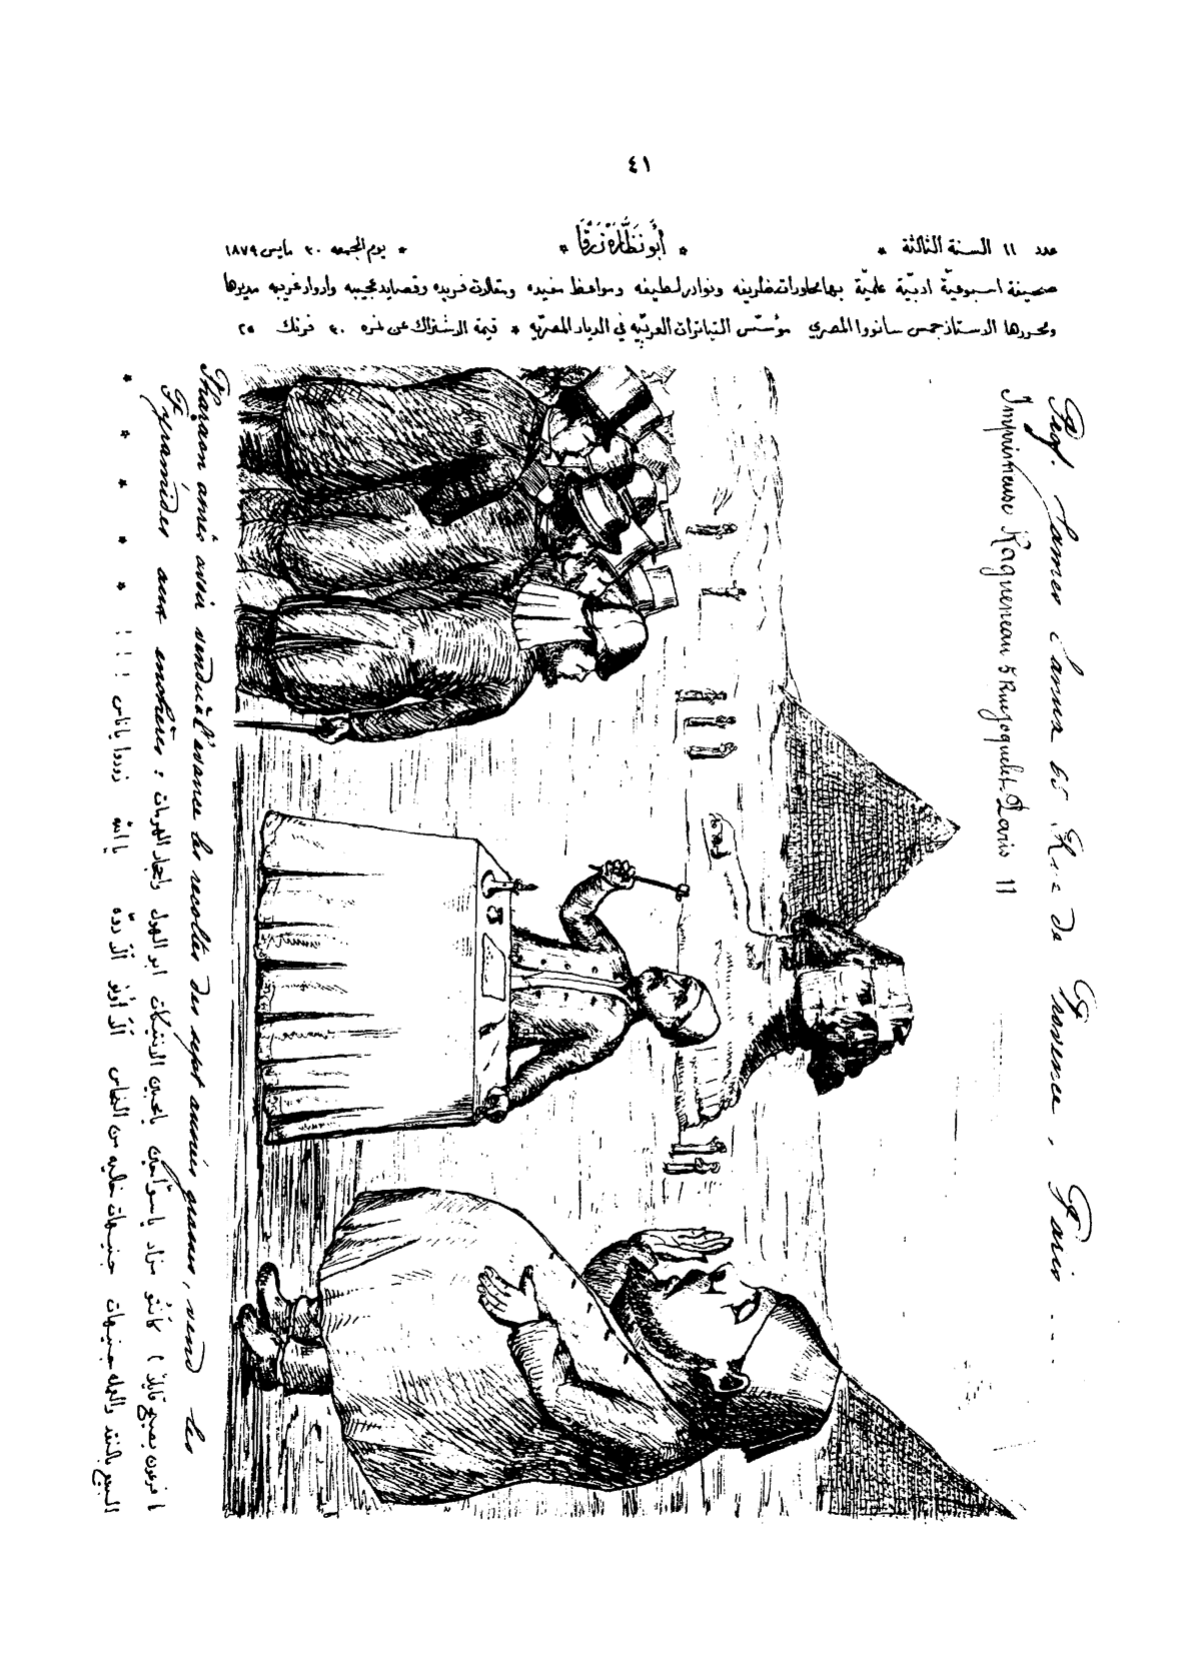 ٤١
عدد ١١ السنة الثالثة * أبو نظارة زرقا * يوم الجمعه ٣٠ مايس ١٨٧٩ *
صحيفة اسبوعيّة ادبيّة علميّة بها محاورات ظريفه ونوادر لطيفه ومواعظ مفيده ومقالات فريده وقصايد عجيبه وادوار غريبه مديرها
ومحررها الاستاذ جمس سانووا المصري مؤسّس التياترات العربيّه في الديار المصريّه * قيمة الاشتراك عن نمره ٣٠ فرنك ٢٥
Prof. James Sanua 65 Rue de Provence, Paris ...
Imprimeuse Ragueneau 5 Rue Joquelet. Paris 11
Pharaon après avoir vendu à l'avance les recoltes des sept années grasses, vend les
Pyramides aux enchères :
فرعون يصيح قايلا ) مزاد يا سوّاحين يا محبين الانتيكات ابو الهول واحجار الهرمات :
البيع بالنقد والعمله جنيهات جنيهات خاليه من النحاس